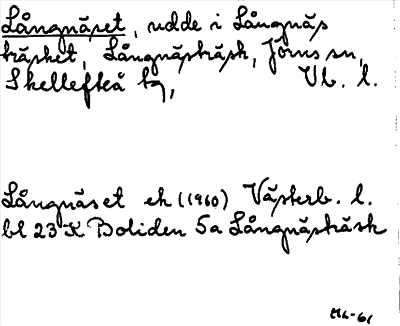 Långnäset, udde i Långnäs
träsket, Långnästräsk, Jörns sn,
Skellefteå tg, Vb. l.
Långnäset ek (1960) Västerb. l.
bl 23 K Boliden 5a Långnästräsk
HL-61